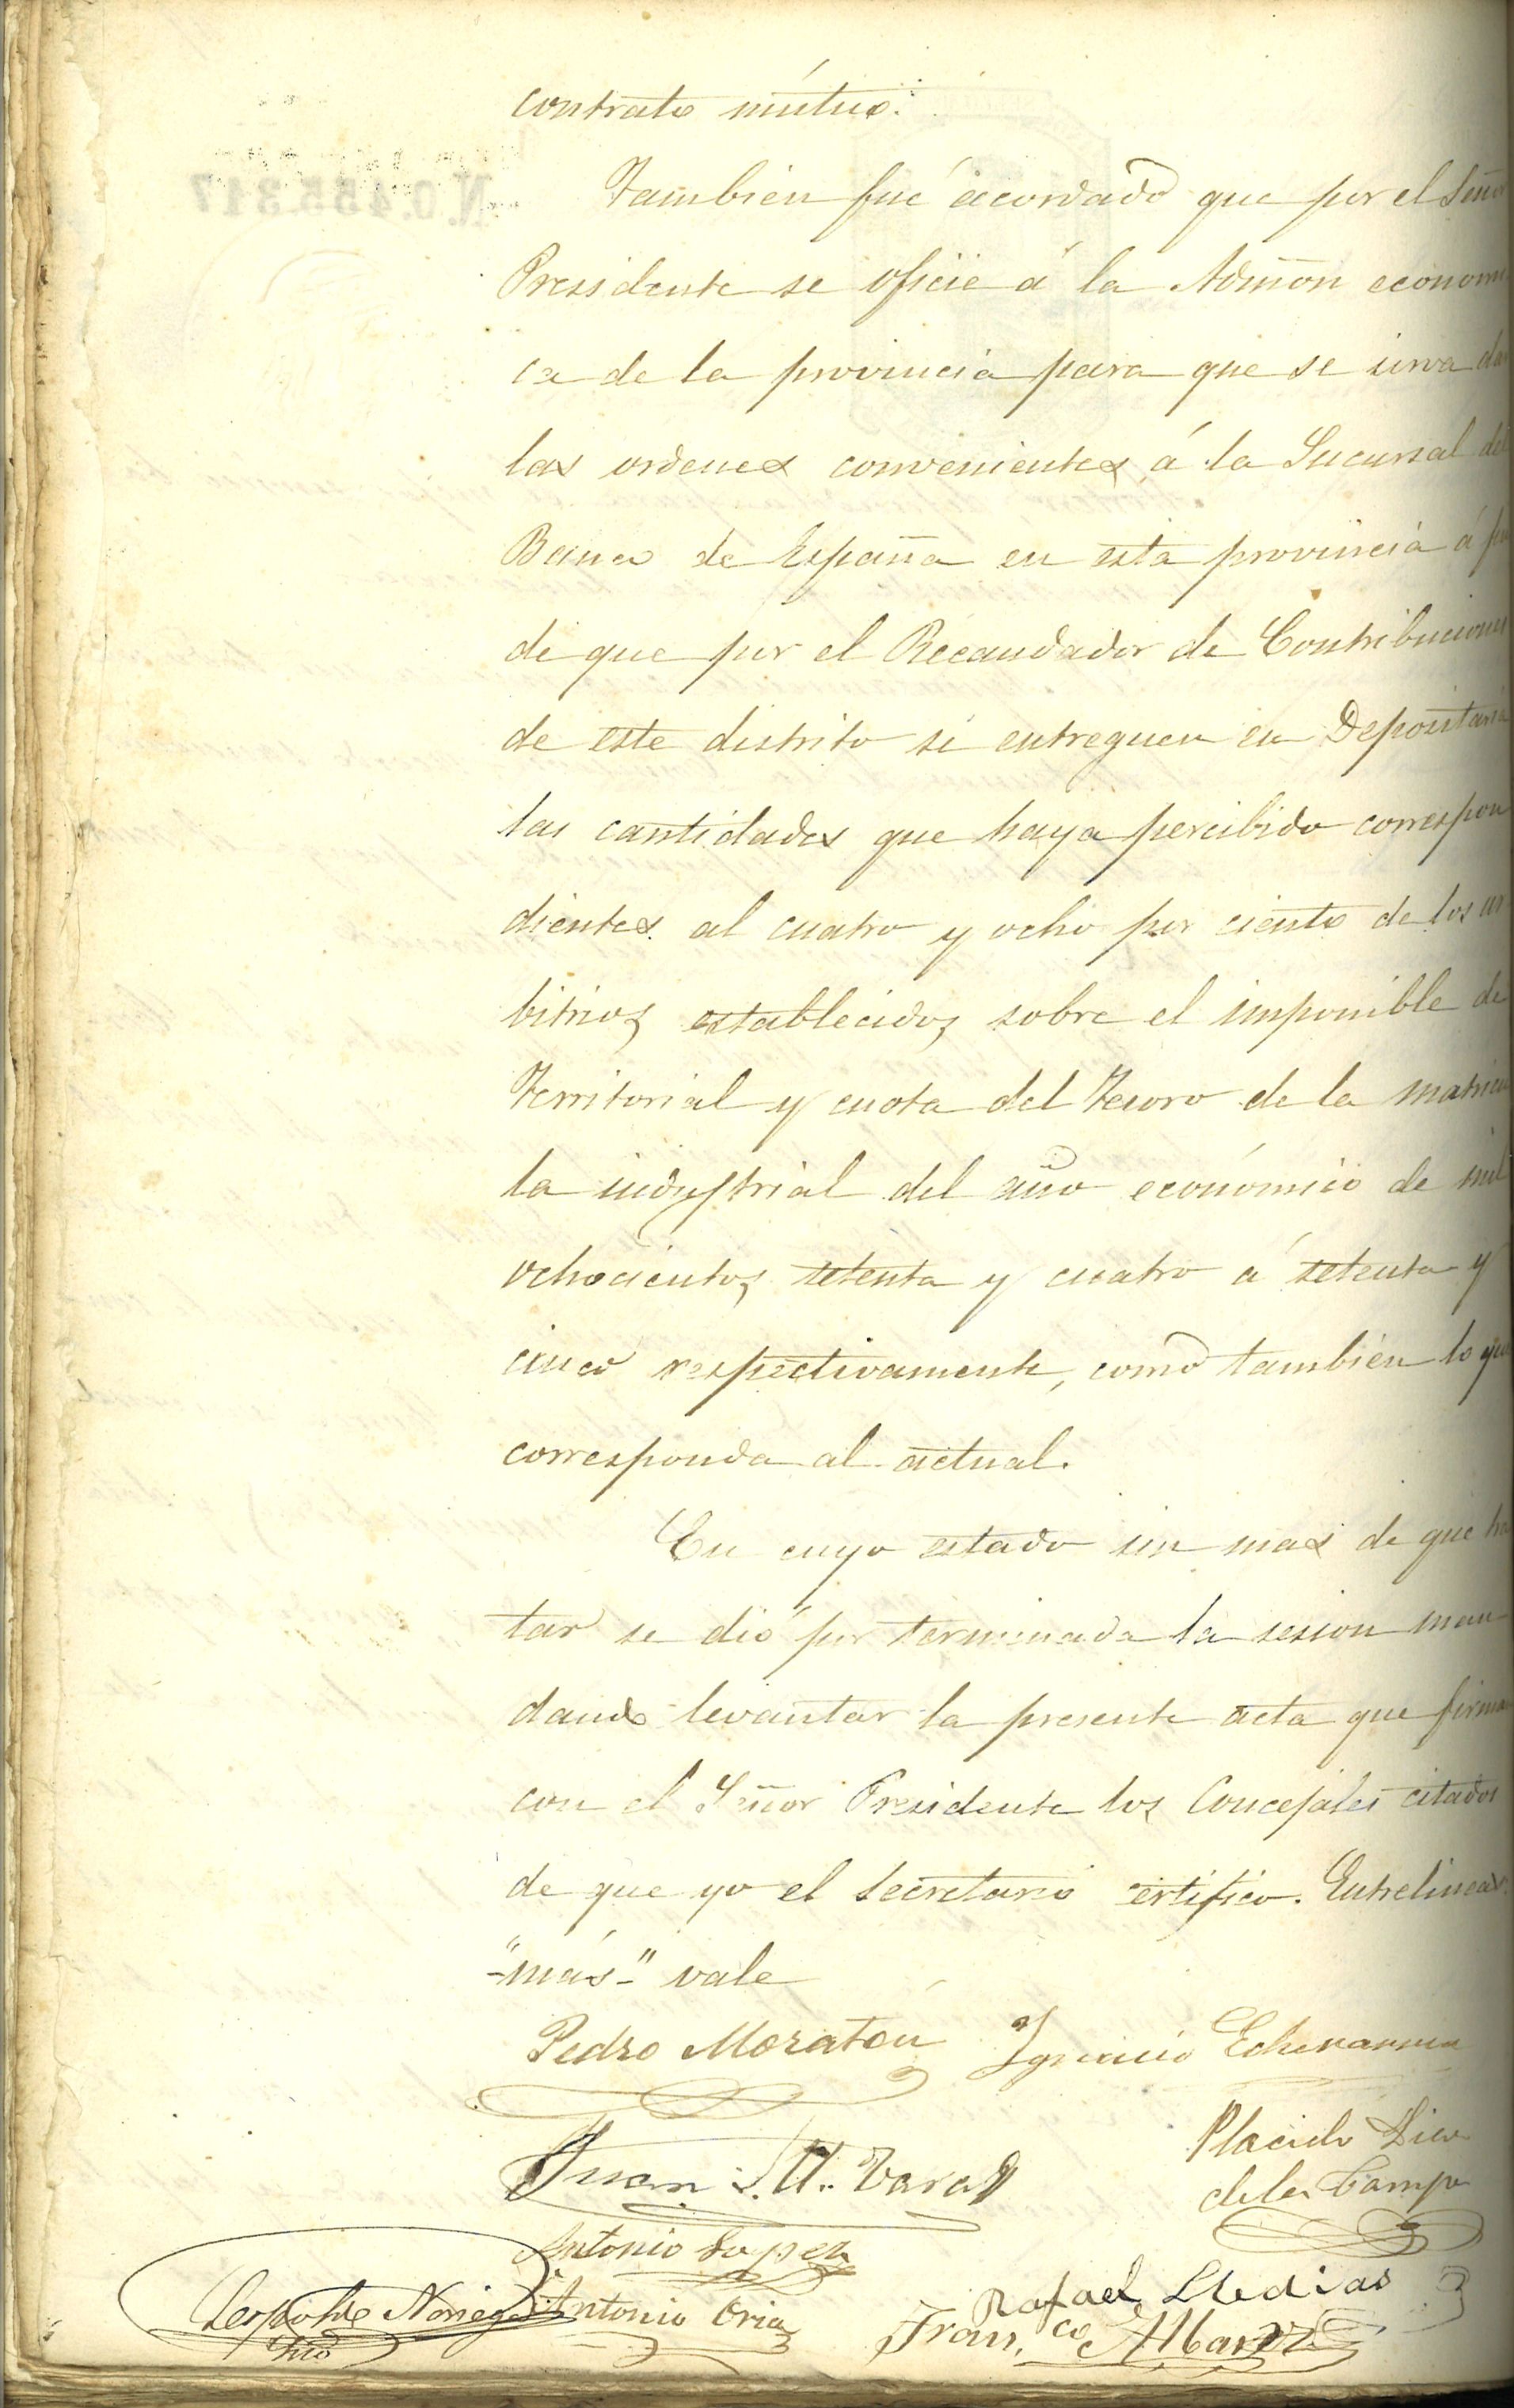 contrato mútuo.
N.0.455.317
Tambien fué acordado que por el Señor
Presidente se oficie á la Admon economi
ca de la provincia para que se sirva dar
las ordenes convenientes á la Sucursal del
Banco de España en esta provincia á fin
de que por el Recaudador de Contribuciones
de este distrito se entreguen en Depositaria
las cantidades que haya percibido correspon
dientes al cuatro y ocho por ciento de los ar
bitrios establecidos sobre el imponible de
Territorial y cuota del Tesoro de la matricu
la industrial del año económico de mil
ochocientos setenta y cuatro á setenta y
cinco respectivamente, como también lo que
corresponda al actual.
En cuyo estado sin mas de que tra
tar se dió por terminada la sesion man
dando levantar la presente acta que firman
con el Señor Presidente los Concejales citados
de que yo el Secretario certifico. Entrelineas
"-más-" vale
Pedro Moratón Ignacio Echevarria
Juan Varas
Placido Dico
de la Campa
Antonio Lopez
Leopoldo Noriega Antonio Oria
Rafael
Fran.co Albarez